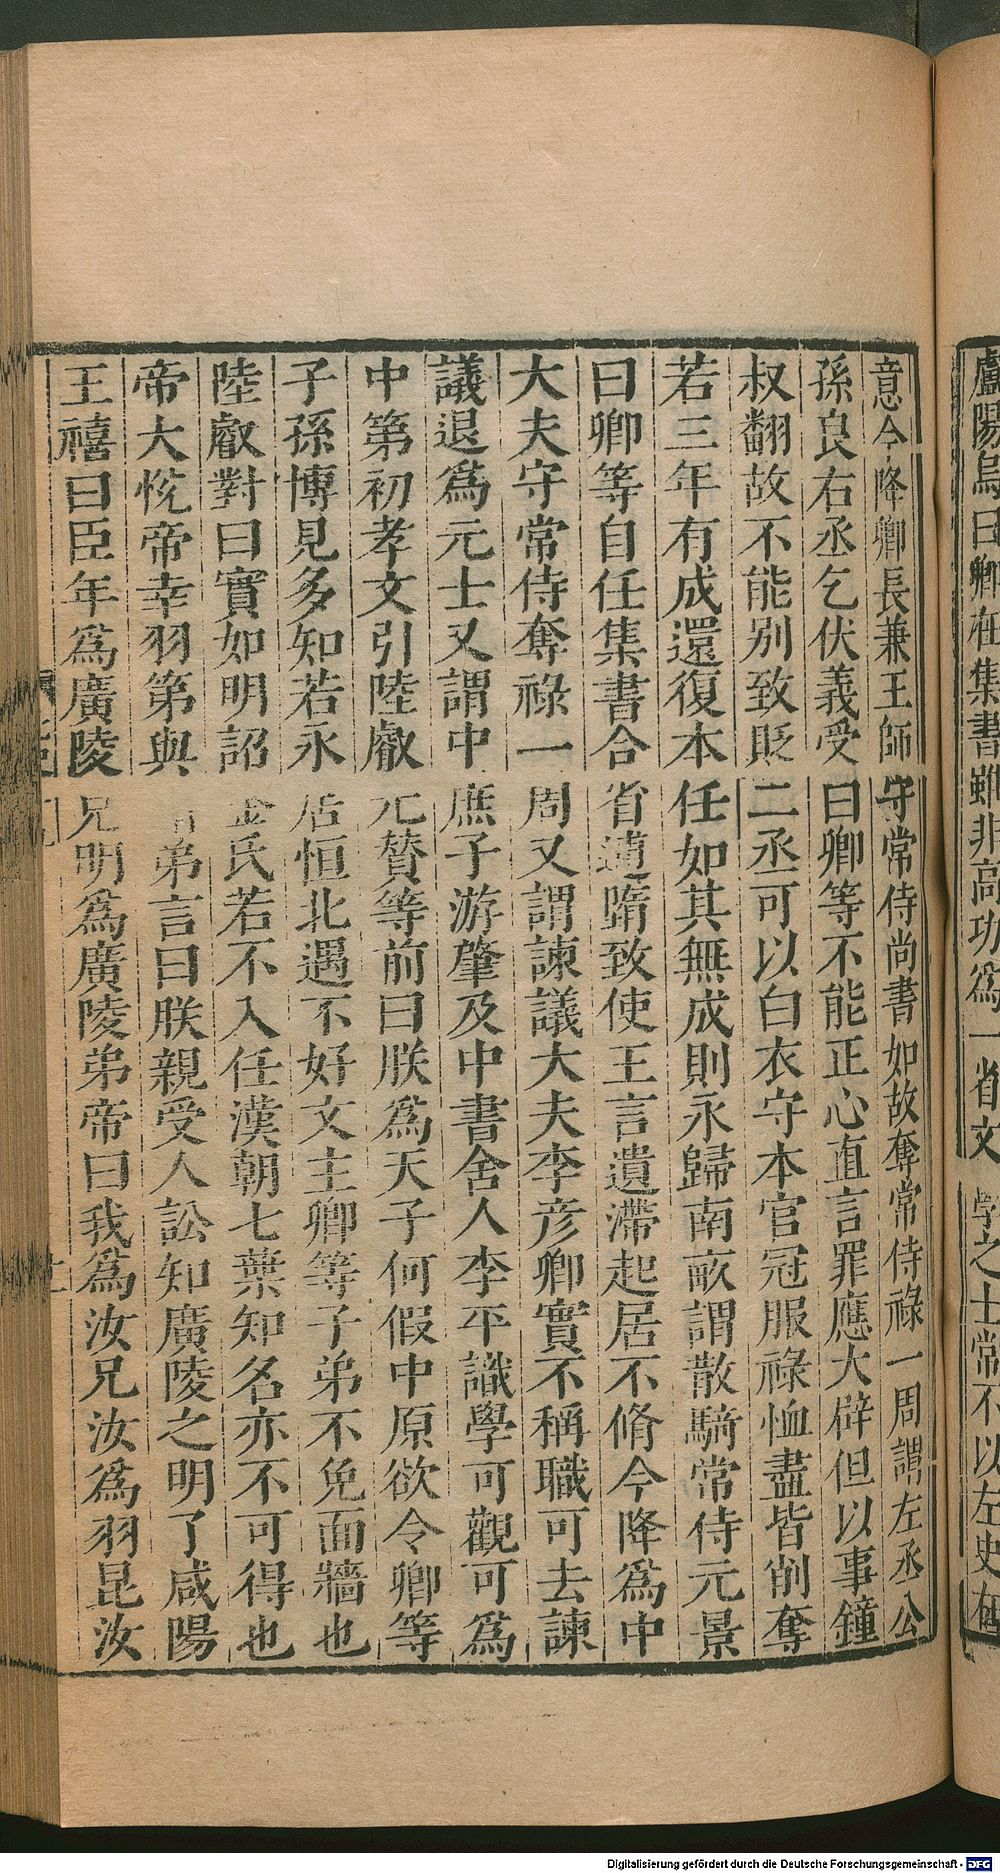 盧陽烏曰卿在集書雖非高功爲一省文學之士常不以左史在
意今降卿長兼王師守常侍尚書如故奪常侍祿一周謂左丞公
孫良右丞乞伏義受曰卿等不能正心直言罪應大辟但以事鐘
叔翻故不能别致貶二丞可以白衣守本官冠服祿恤盡皆削奪
若三年有成還復本任如其無成則永歸南畝謂散騎常侍元景
曰卿等自任集書合省逋隋致使王言遺滯起居不脩今降爲中
大夫守常侍奪祿一周又謂諫議大夫李彦卿實不稱職可去諫
議退爲元士又謂中庶子游肇及中書舍人李平識學可觀可爲
中第初孝文引陸叡元贊等前曰朕爲天子何假中原欲令卿等
子孫博見多知若永居恒北遇不好文主卿等子弟不免面牆也
陸叡對曰實如明詔金氏若不入任漢朝七葉知名亦不可得也
帝大悅帝幸羽第與弟言曰朕親受人訟知廣陵之明了咸陽
王禧曰臣年爲廣陵兄明爲廣陵弟帝曰我爲汝兄汝爲羽昆汝
Digitalisierung gefördert durch die Deutsche Forschungsgemeinschaft - DFG